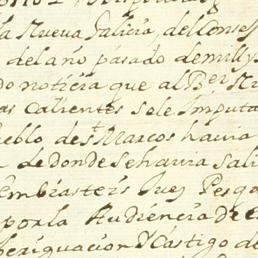 la Nueva Galicia, del Conse
del año pasado de mill y s
do noticia que al B.er
as Calientes sole Imputa
eblo de S.t Marcos havia
de donde se havia Sali
embiasteis Juez Pesq
por la Audiencia de
beriguacion Y Castigo de